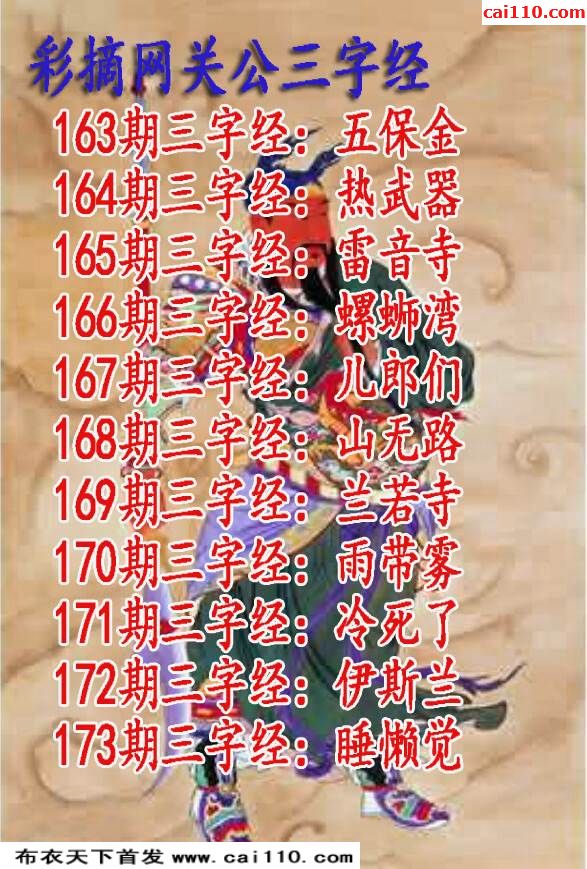 cai110.com
彩摘网关公三字经
163期三字经：五保金
164期三字经：热武器
165期三字经：雷音寺
166期三字经：螺蛳湾
167期三字经：儿郎们
168期三字经：山无路
169期三字经：兰若寺
170期三字经：雨带雾
171期三字经：冷死了
172期三字经：伊斯兰
173期三字经：睡懒觉
布衣天下首发 www.cai110.com